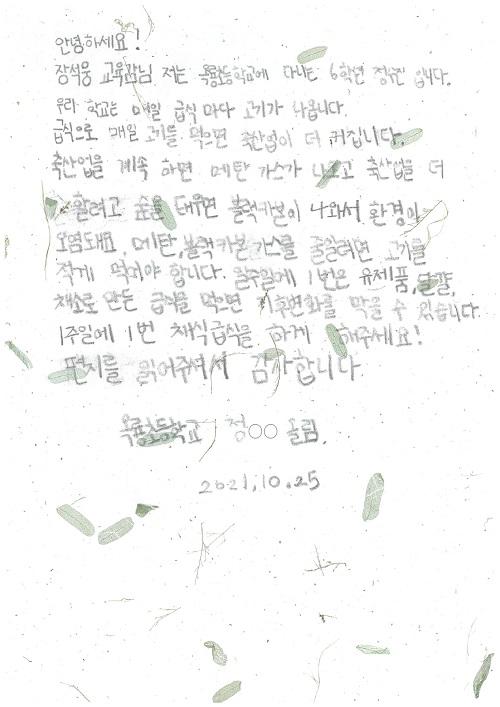 안녕하세요!
장석웅 교육감님 저는 옥룡초등학교에 다니는 6학년 정수진 입니다.
우리 학교는 매일 급식 마다 고기가 나옵니다.
급식으로 매일 고기를 먹으면 축산업이 더 커집니다.
축산업을 계속 하면 메탄 가스가 나오고 축산업을 더
홀려고 숲을 태우면 블랙카본이 나와서 환경이
오염돼요, 메탄,블랙카본 가스를 줄일려면 고기를
적게 먹어야 합니다. 일주일에 1번은 유제품,달걀,
채소로 만든 급식을 먹으면 기후변화를 막을 수 있습니다.
1주일에 1번 채식급식을 하게 해주세요!
편지를 읽어주셔서 감사합니다
옥룡초등학교 정○○ 올림.
2021.10.25